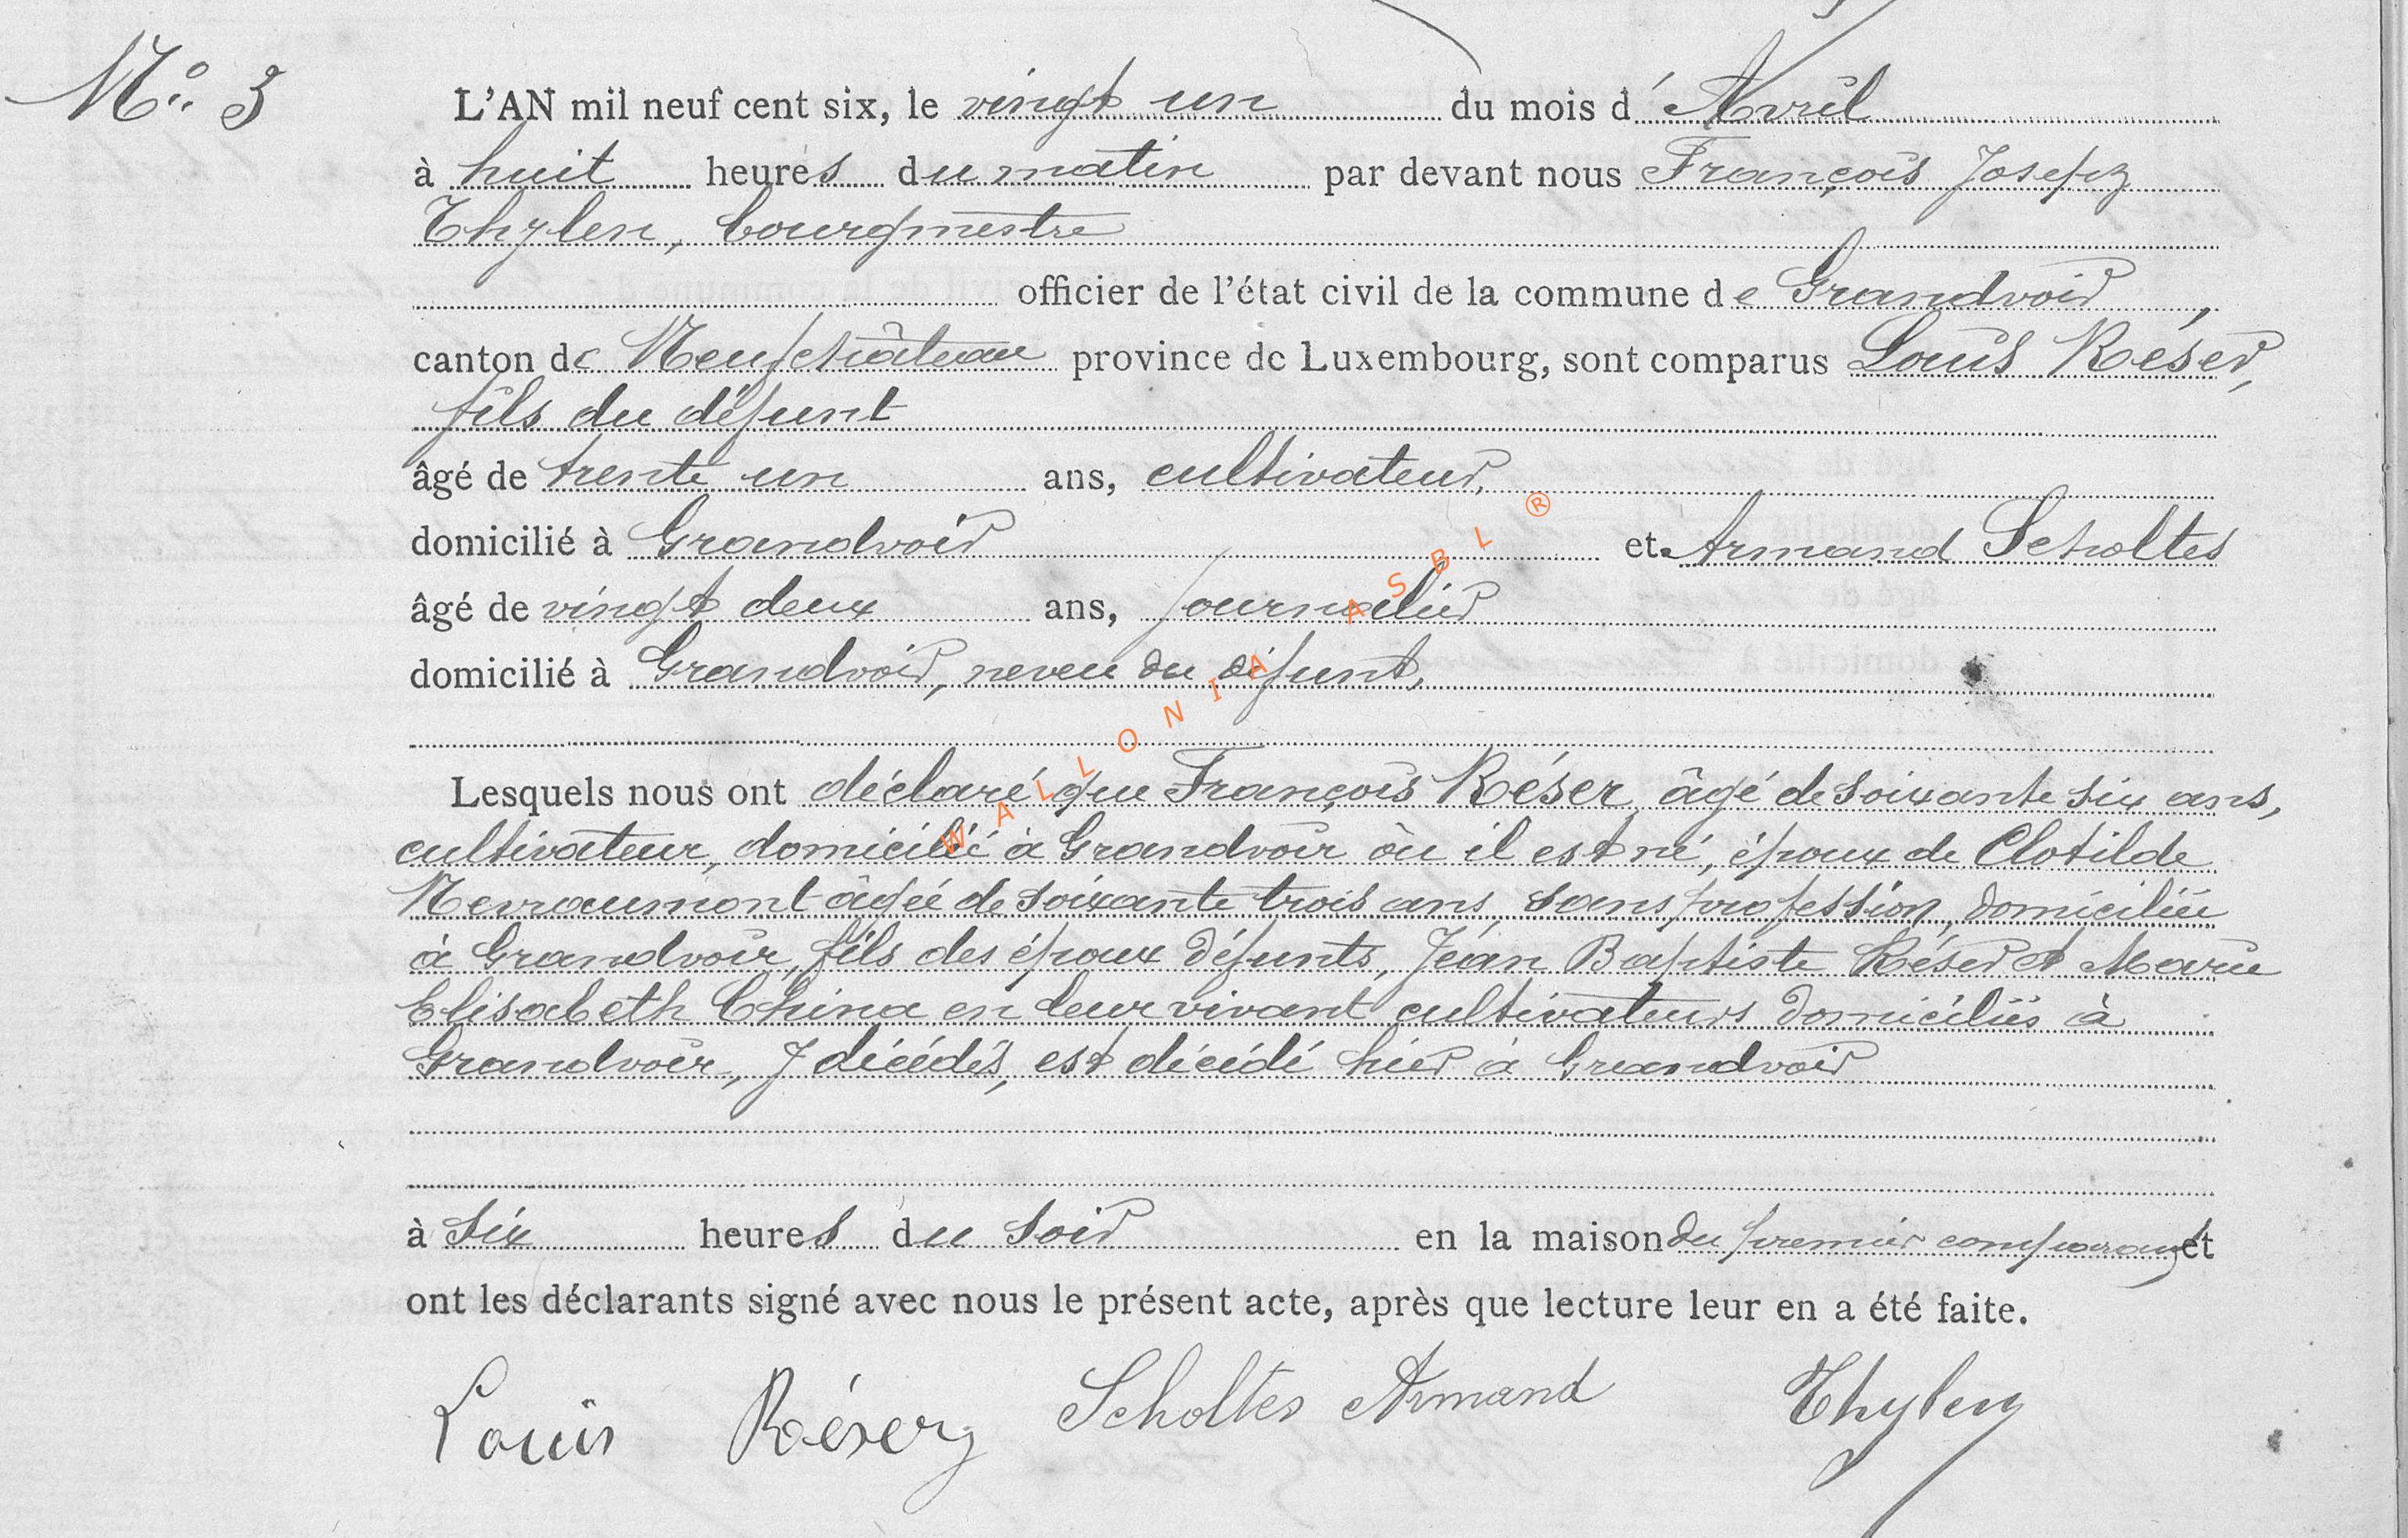 N° 3
L'AN mil neuf cent six, le vingt un du mois d'Avril
à huit heures du matin par devant nous François Joseph
Thylen, bourgmestre
officier de l'état civil de la commune de Grandvoir,
canton de Neufchâteau province de Luxembourg, sont comparus Louis Réser,
fils du défunt
âgé de trente un ans, cultivateur,
domicilié à Grandvoir et Armand Scholtes
âgé de vingt deux ans, journalier
domicilié à Grandvoir, neveu du défunt,
Lesquels nous ont déclaré que François Réser, âgé de soixante six ans,
cultivateur, domicilié à Grandvoir où il est né, époux de Clotilde
Nevraumont âgée de soixante trois ans, sans profession, domiciliée
à Grandvoir, fils des époux défunts, Jean Baptiste Réser et Marie
Elisabeth China en leur vivant cultivateurs domiciliés à
Grandvoir, y décédés, est décédé hier à Grandvoir
à six heures du soir en la maison du premier comparant et
ont les déclarants signé avec nous le présent acte, après que lecture leur en a été faite.
Louis Réser Scholtes Armand Thylen
WALLONIA ASBL ®